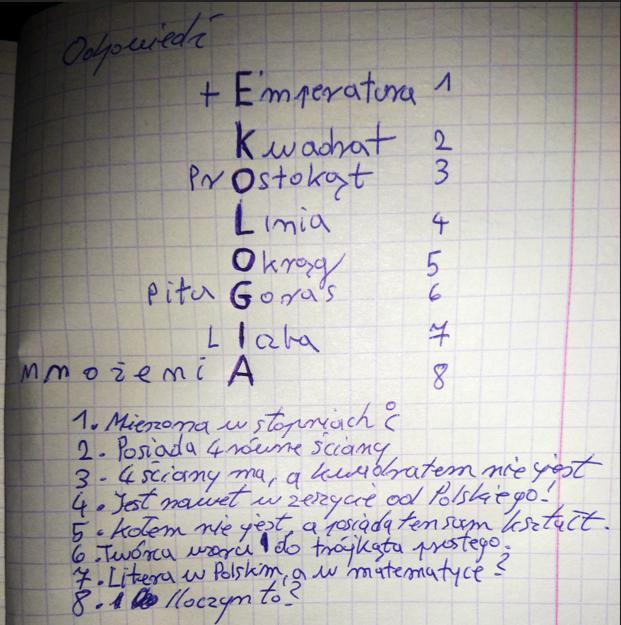 Odpowiedź
+Emperatura 1
Kwadrat 2
PrOstokąt 3
Linia 4
Okrąg 5
pitaGoras 6
LIczba 7
mnożeniA 8
1. Mierzona w stopniach °C
2. Posiada 4 równe ściany
3 - 4 ściany ma, a kwadratem nie jest
4. Jest nawet w zeszycie od Polskiego!
5. Kołem nie jest, a posiada ten sam kształt.
6. Twórca wzoru do trójkąta prostego.
7. Litera w Polskim, a w matematyce?
8. Iloczyn to?